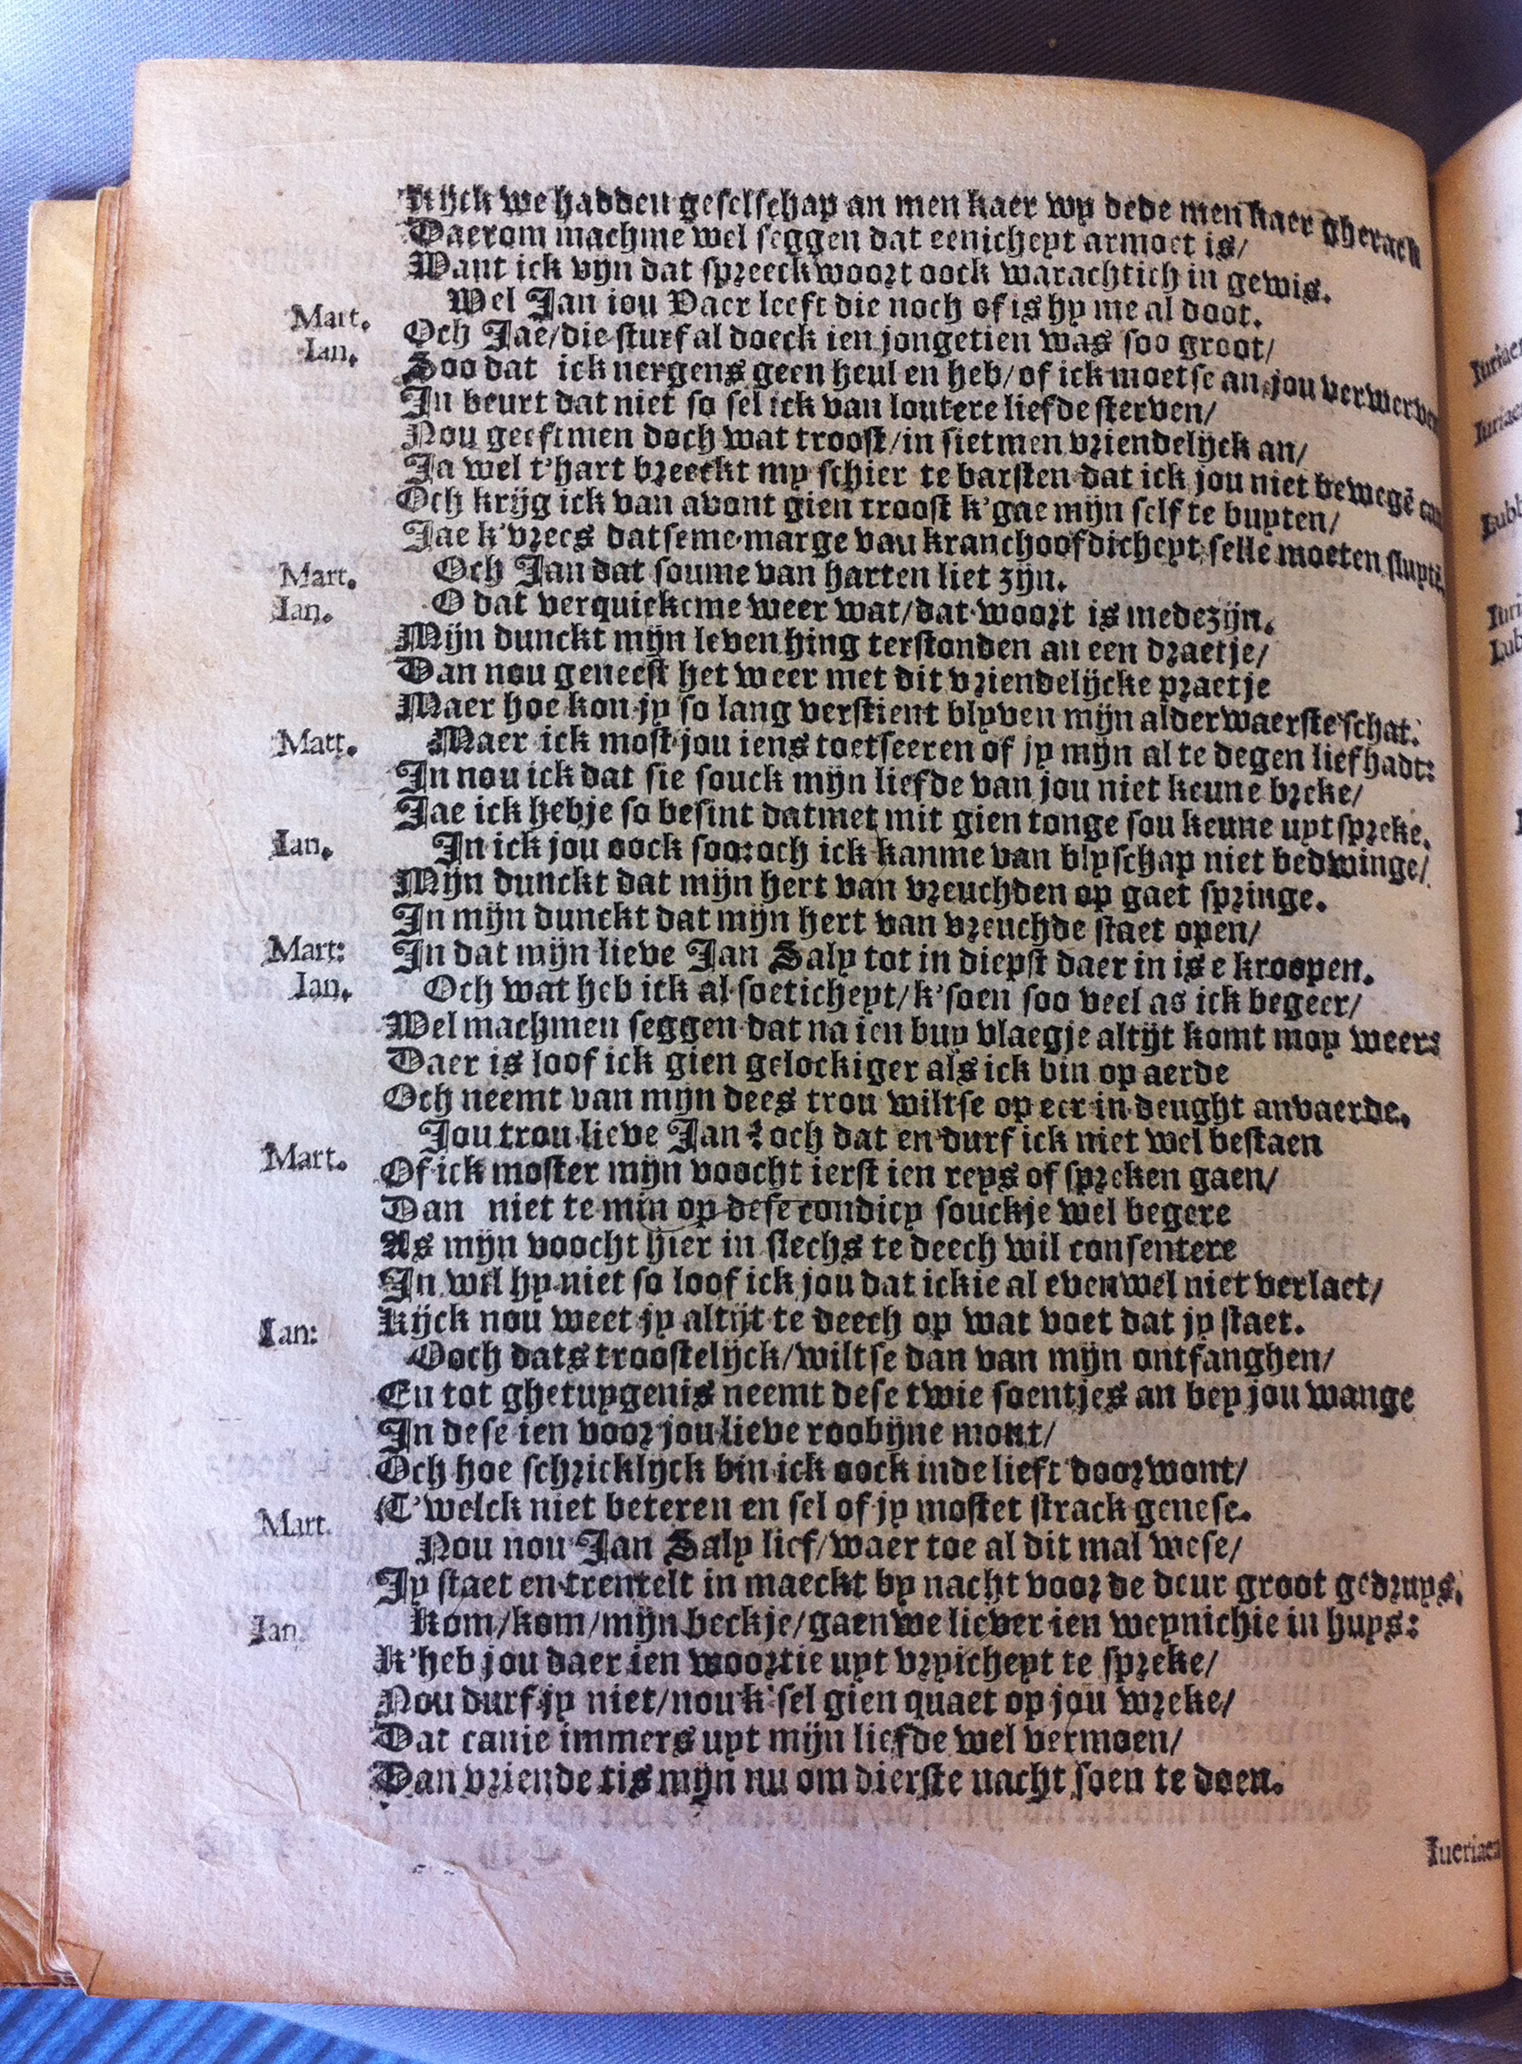 Kijck we hadden geselschap an men kaer wy dede men kaer gherack
Daerom machme wel seggen dat eenicheyt armoet is/
Want ick vijn dat spreeckwoort oock warachtich in gewis.
Mart. Wel Jan iou Vaer leeft die noch of is hy me al doot.
Ian. Och Jae/die sturf al doeck ien jongetien was soo groot/
Soo dat ick nergens geen heul en heb/of ick moetse an jou verwerven
In beurt dat niet so sel ick van loutere liefde sterven/
Nou geeftmen doch wat troost/in sietmen vriendelijck an/
Ja wel t'hart breeckt my schier te barsten dat ick jou niet bewegē can
Och krijg ick van avont gien troost k'gae mijn self te buyten/
Jae k'vrees datseme marge vau kranchoofdicheyt selle moeten sluytē.
Mart. Och Jan dat soume van harten liet zijn.
Ian. O dat verquickcme weer wat/dat woort is medezijn.
Mijn dunckt mijn leven hing terstonden an een draetje/
Dan nou geneest het weer met dit vriendelijcke praetje
Maer hoe kon jy so lang verstient blyven mijn alderwaerste schat.
Mart. Maer ick most jou iens toetseeren of jy mijn al te degen lief hadt:
In nou ick dat sie souck mijn liefde van jou niet keune breke/
Jae ick hebje so besint datmet mit gien tonge sou keune uyt spreke.
Ian. In ick jou oock soo:och ick kanme van blyschap niet bedwinge/
Mijn dunckt dat mijn hert van vreuchden op gaet springe.
In mijn dunckt dat mijn hert van vreuchde staet open/
Mart: In dat mijn lieve Jan Saly tot in diepst daer in is e kroopen.
Ian. Och wat heb ick al soeticheyt/k'soen soo veel as ick begeer/
Wel machmen seggen dat na ien buy vlaegje altijt komt moy weer:
Daer is loof ick gien gelockiger als ick bin op aerde
Och neemt van mijn dees trou wiltse op eer in deught anvaerde.
Mart. Jou trou lieve Jan? och dat en durf ick niet wel bestaen
Of ick moster mijn voocht ierst ien reys of spreken gaen/
Dan niet te min op dese condicy souckje wel begere
As mijn voocht hier in slechs te deech wil consentere
In wil hy niet so loof ick jou dat ickie al evenwel niet verlaet/
Kijck nou weet jy altijt te deech op wat voet dat jy staet.
Ian: Ooch dats troostelijck/wiltse dan van mijn ontfanghen/
En tot ghetuygenis neemt dese twie soentjes an bey jou wange
In dese ien voor jou lieve roobijne mont/
Och hoe schricklijck bin ick oock inde lieft doorwont/
T'welck niet beteren en sel of jy mostet strack genese.
Mart. Nou nou Jan Saly lief/waer toe al dit mal wese/
Jy staet en trentelt in maeckt by nacht voor de deur groot gedruys.
Ian. Kom/kom/mijn beckje/gaen we liever ien weynichie in huys:
K'heb jou daer ien woortie uyt vryicheyt te spreke/
Nou durf jy niet/nou k'sel gien quaet op jou wreke/
Dat canie immers uyt mijn liefde wel vermoen/
Dan vriende tis mijn nu om dierste nacht soen te doen.
Iueriaen